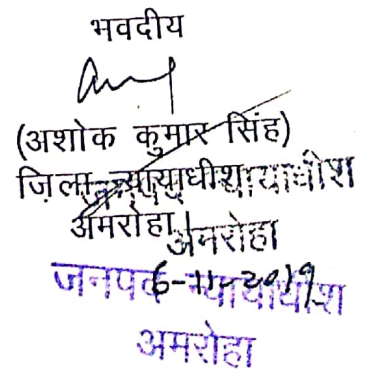 भवदीय
(अशोक कुमार सिंह)
ज़िला न्यायाधीश
अमरोहा।
अमरोहा
6-11-2019
जनपद न्यायाधीश
अमरोहा